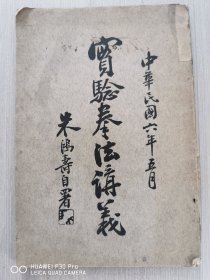 中華民國六年五月
實驗拳法講義
朱鴻壽自署
HUAWEI P30 Pro